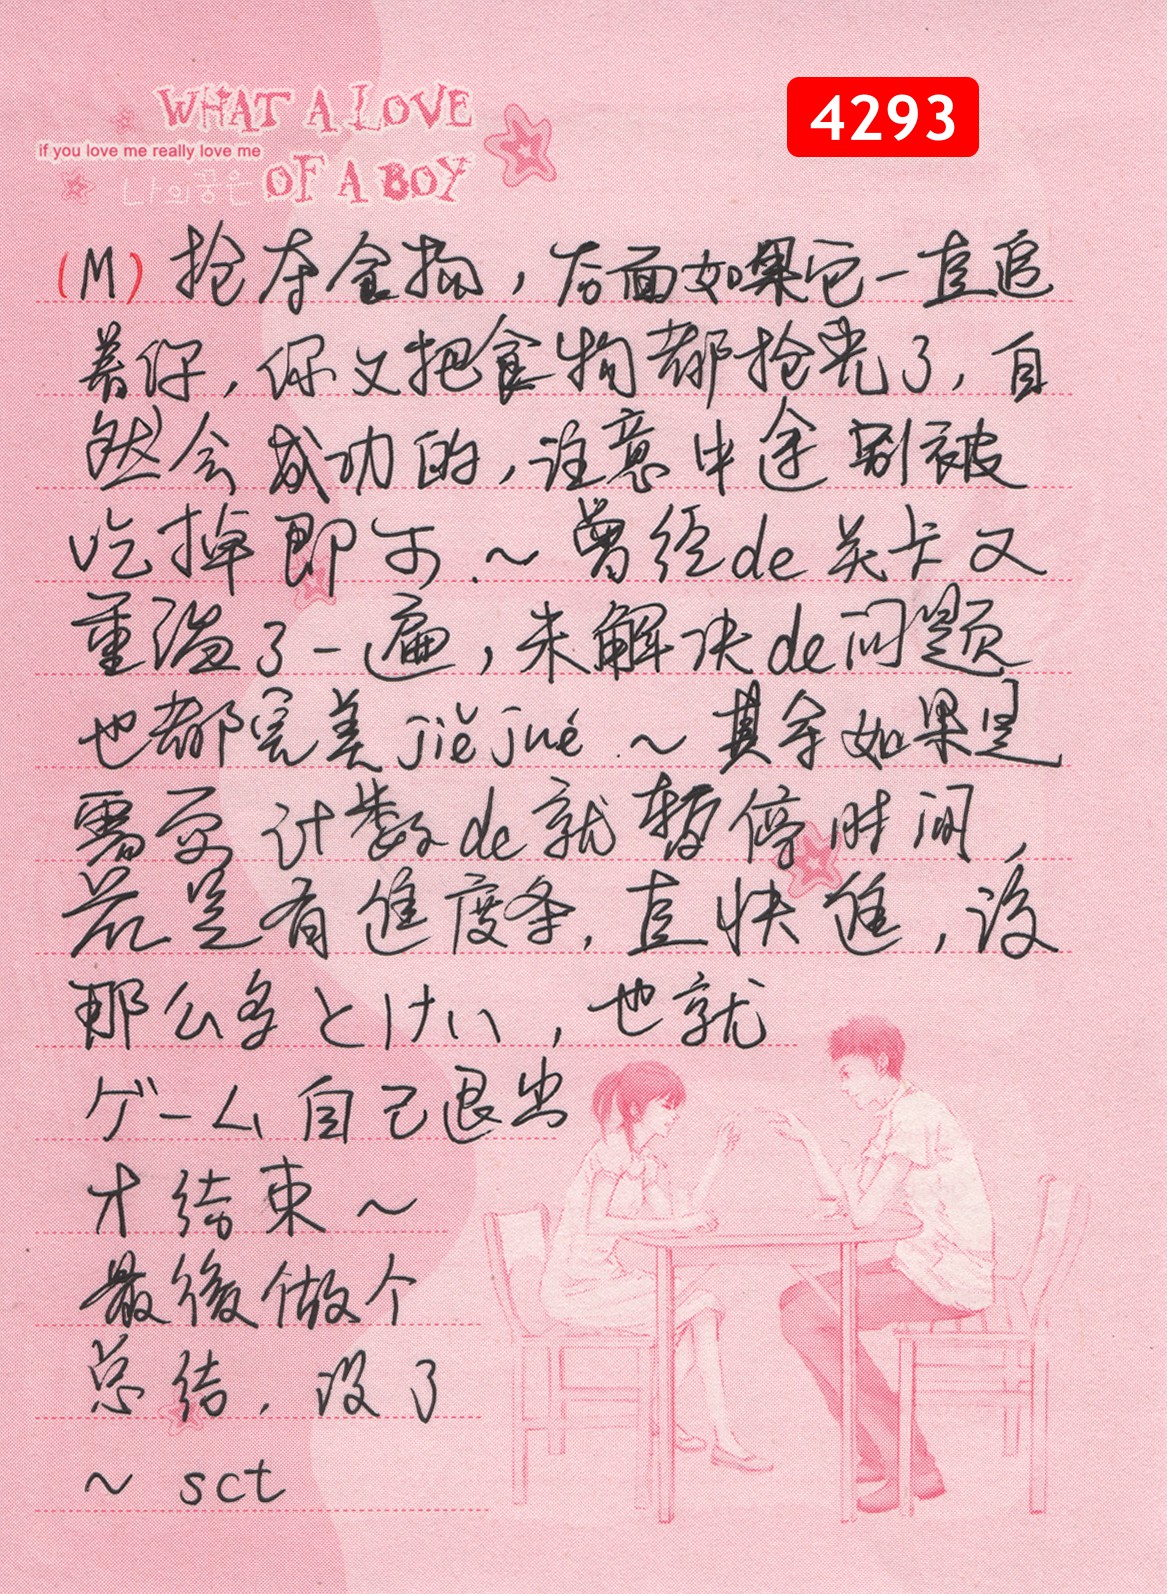 WHAT A LOVE
if you love me really love me
나의꿈은 OF A BOY
4293
(M) 抢夺食物，后面如果它一直追
着你，你又把食物都抢光了，自
然会成功的，注意中途别被
吃掉即可.～曾经de关卡又
重温了一遍，未解决de问题
也都完美jiějué.～其余如果是
需要计数de就暂停时间，
若是有進度条，直快進，没
那么多とけい，也就
ゲーム自己退出
才结束～
最後做个
总结，没了
～sct